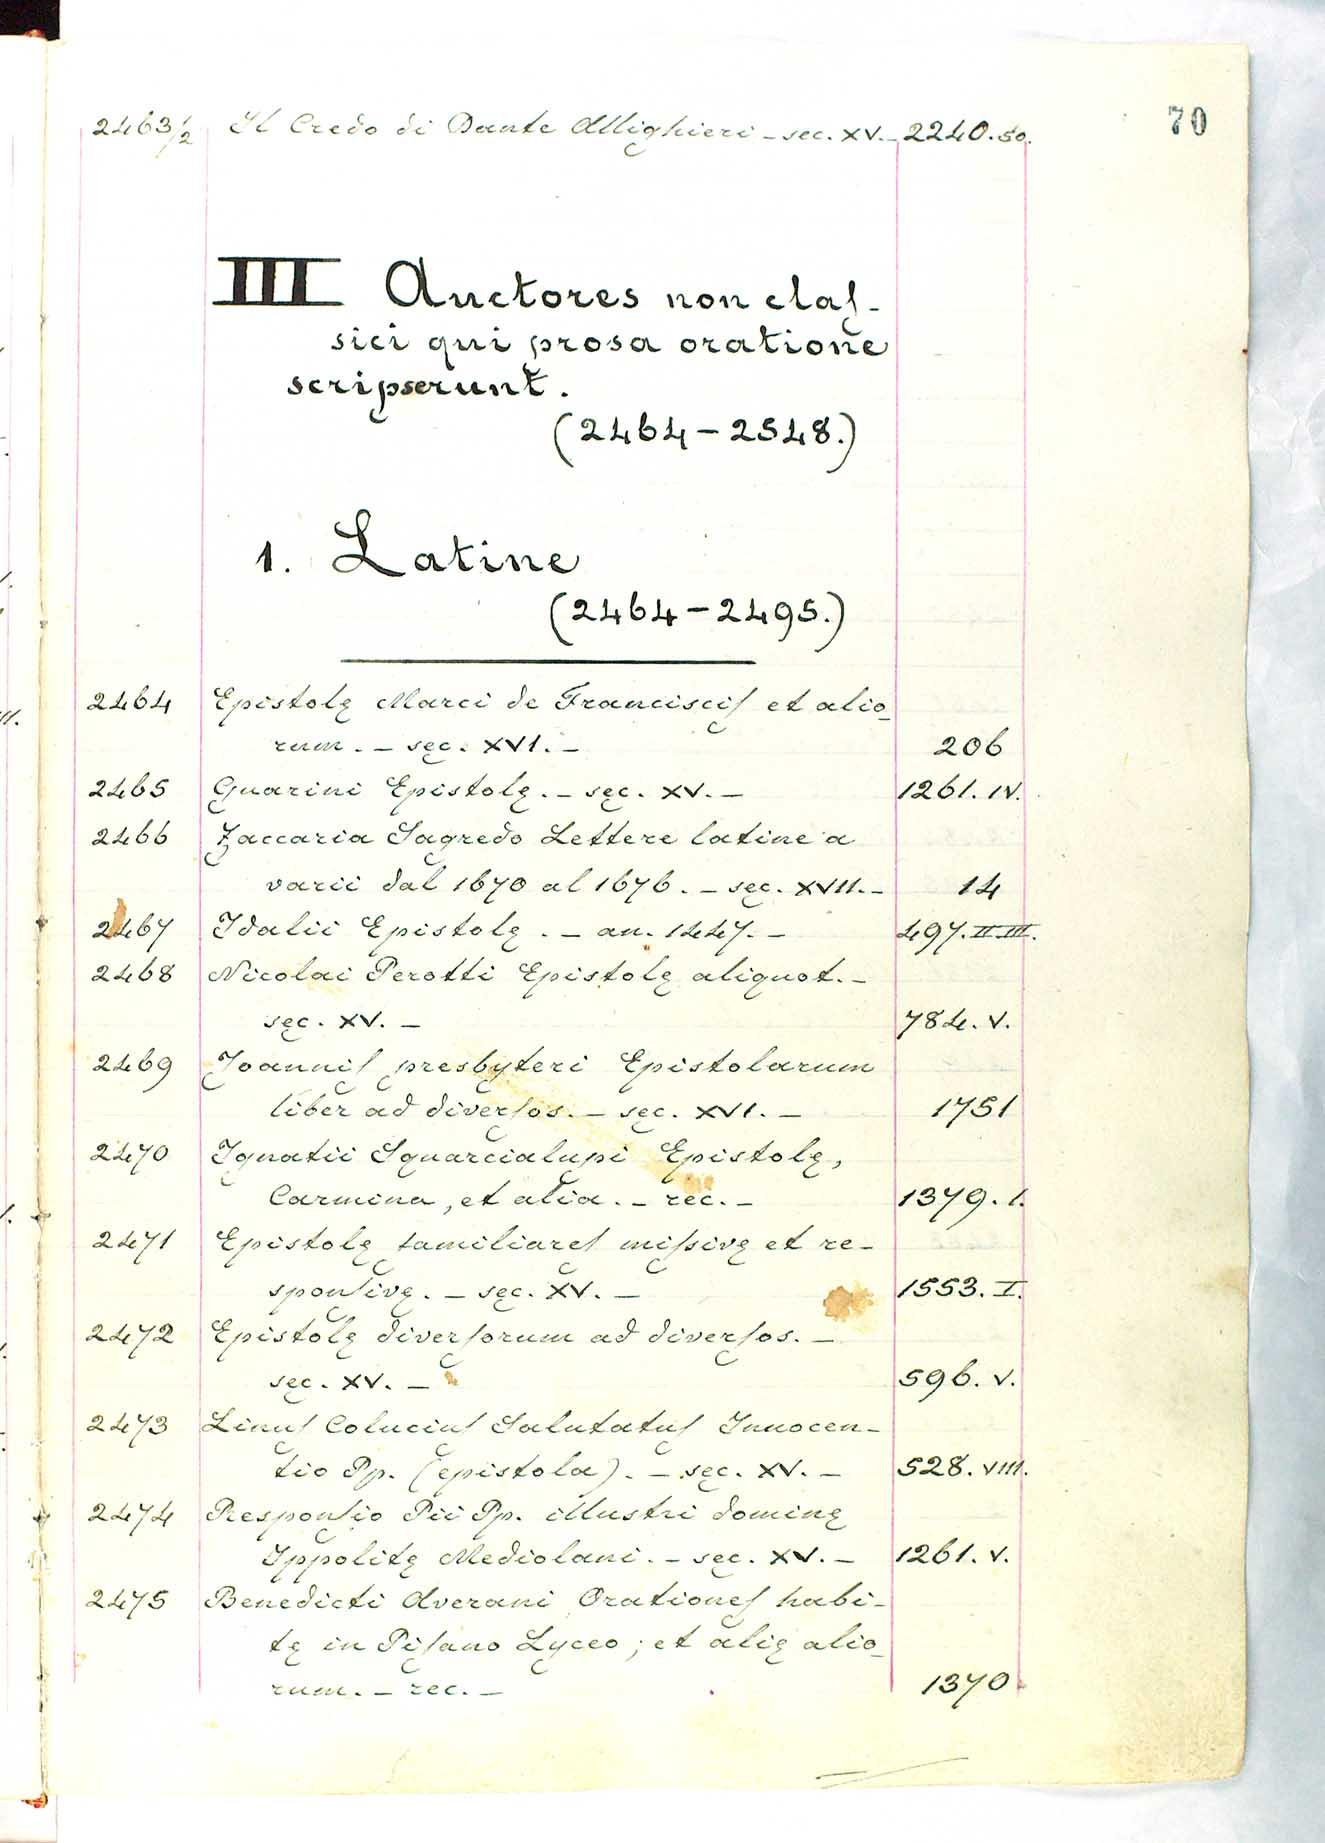 70
2463 1/2 Il Credo di Dante Allighieri - sec. XV. - 2240.50.
III Auctores non claſ-
sici qui prosa oratione
scripserunt.
(2464 - 2548.)
1. Latine
(2464 - 2495.)
2464 Epistolę Marci de Francisciſ et alio-
rum. - sęc. XVI. - 206
2465 Guarini Epistolę. - sęc. XV. - 1261. IV.
2466 Zaccaria Sagredo Lettere latine a
varii dal 1670 al 1676. - sęc. XVII. - 14
2467 Idalii Epistolę. - an. 1447. - 497. II. III.
2468 Nicolai Perotti Epistolę aliquot. -
sęc. XV. - 784. V.
2469 Joanniſ presbyteri Epistolarum
liber ad diverſos. - sęc. XVI. - 1751
2470 Ignatii Squarcialupi Epistolę,
Carmina, et alia. - rec. - 1379. I.
2471 Epistolę familiareſ miſsivę et re-
sponſivę. - sęc. XV. - 1553. I.
2472 Epistolę diverſorum ad diverſos. -
sęc. XV. - 596. V.
2473 Linuſ Coluciuſ Salutatuſ Innocen-
tio Pp. (epistola). - sęc. XV. - 528. VIII.
2474 Responſio Pii Pp. illustri dominę
Ippolitę Mediolani. - sec. XV. - 1261. V.
2475 Benedicti Averani Orationeſ habi-
tę in Piſano Lyceo; et alię alio-
rum. - rec. - 1370